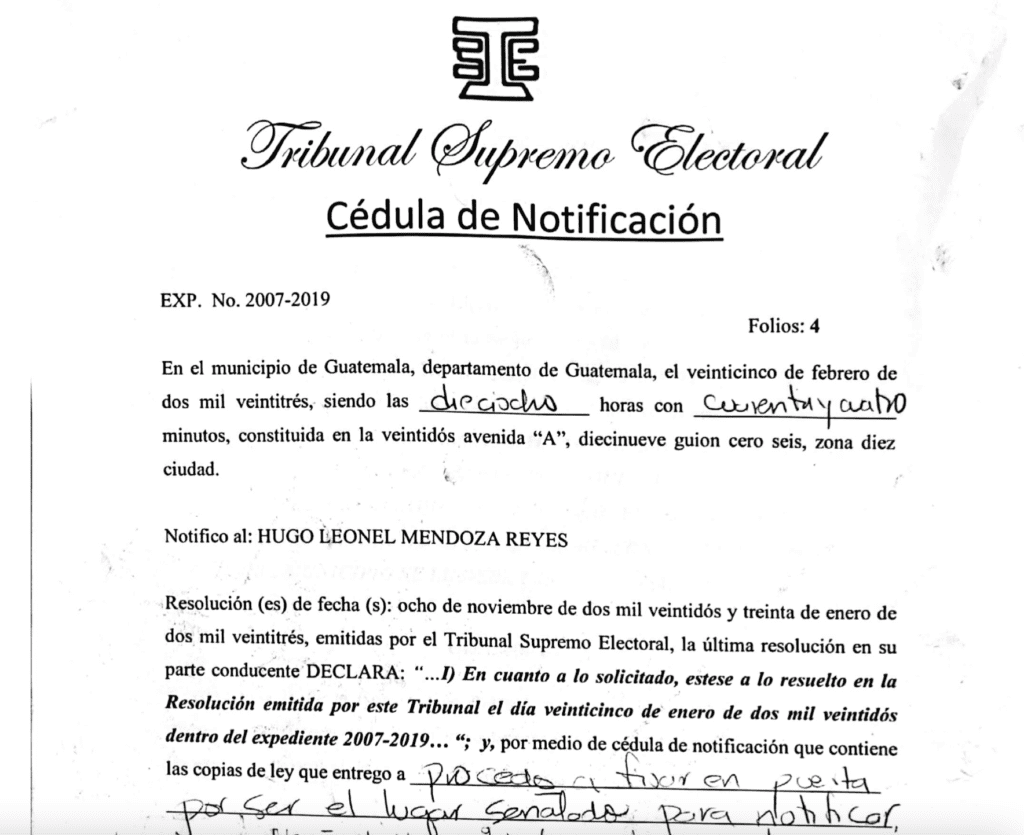 TSE
Tribunal Supremo Electoral
Cédula de Notificación
EXP. No. 2007-2019
Folios: 4
En el municipio de Guatemala, departamento de Guatemala, el veinticinco de febrero de
dos mil veintitrés, siendo las dieciocho horas con cuarenta y cuatro
minutos, constituida en la veintidós avenida “A”, diecinueve guion cero seis, zona diez
ciudad.
Notifico al: HUGO LEONEL MENDOZA REYES
Resolución (es) de fecha (s): ocho de noviembre de dos mil veintidós y treinta de enero de
dos mil veintitrés, emitidas por el Tribunal Supremo Electoral, la última resolución en su
parte conducente DECLARA: “...I) En cuanto a lo solicitado, estese a lo resuelto en la
Resolución emitida por este Tribunal el día veinticinco de enero de dos mil veintidós
dentro del expediente 2007-2019... “; y, por medio de cédula de notificación que contiene
las copias de ley que entrego a procedo a fijar en puerta
por ser el lugar señalado para notificar,